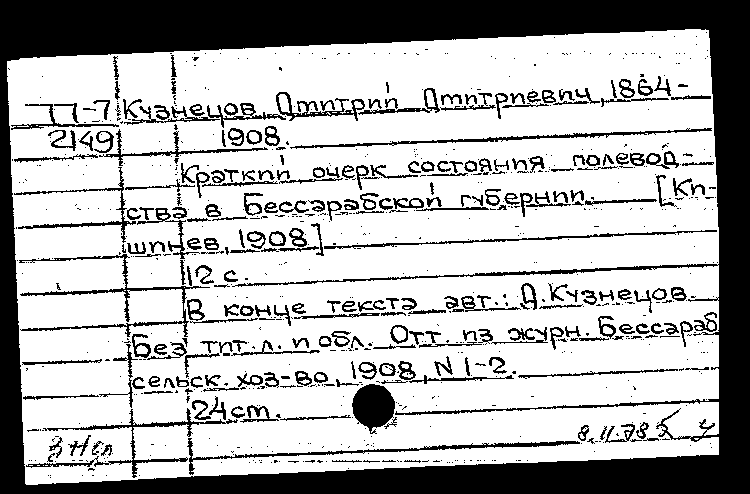 П-7 Кузнецов, Дмитрий Дмитриевич, 1864-
2149 1908.
Краткий очерк состояния полевод-
ства в Бессарабской губернии. [Ки-
шинев, 1908].
12 с.
В конце текста авт.: Д. Кузнецов.
Без тит. л. и обл. Отт. из журн. Бессараб
сельск. хоз-во, 1908, N 1-2.
24 cm.
8.II.78